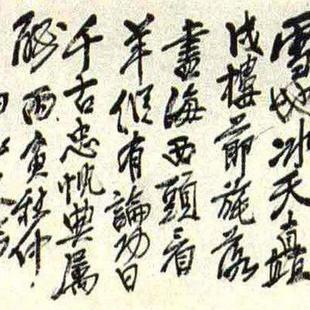 雪地冰天矗
戍樓節旄落
盡海西頭看
羊縱有論功日
千古忠忱典屬
酬丙寅秋仲